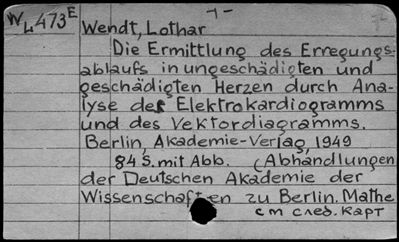 W L 473 E -1-
Wendt, Lothar
Die Ermittlung des Erregungs-
ablaufs in ungeschädigten und
geschädigten Herzen durch Ana-
lyse des Elektrokardiogramms
und des Vektordiagramms.
Berlin, Akademie-Verlag, 1949
84 S. mit Abb. (Abhandlungen
der Deutschen Akademie der
Wissenschaften zu Berlin. Mathe
см след. карт